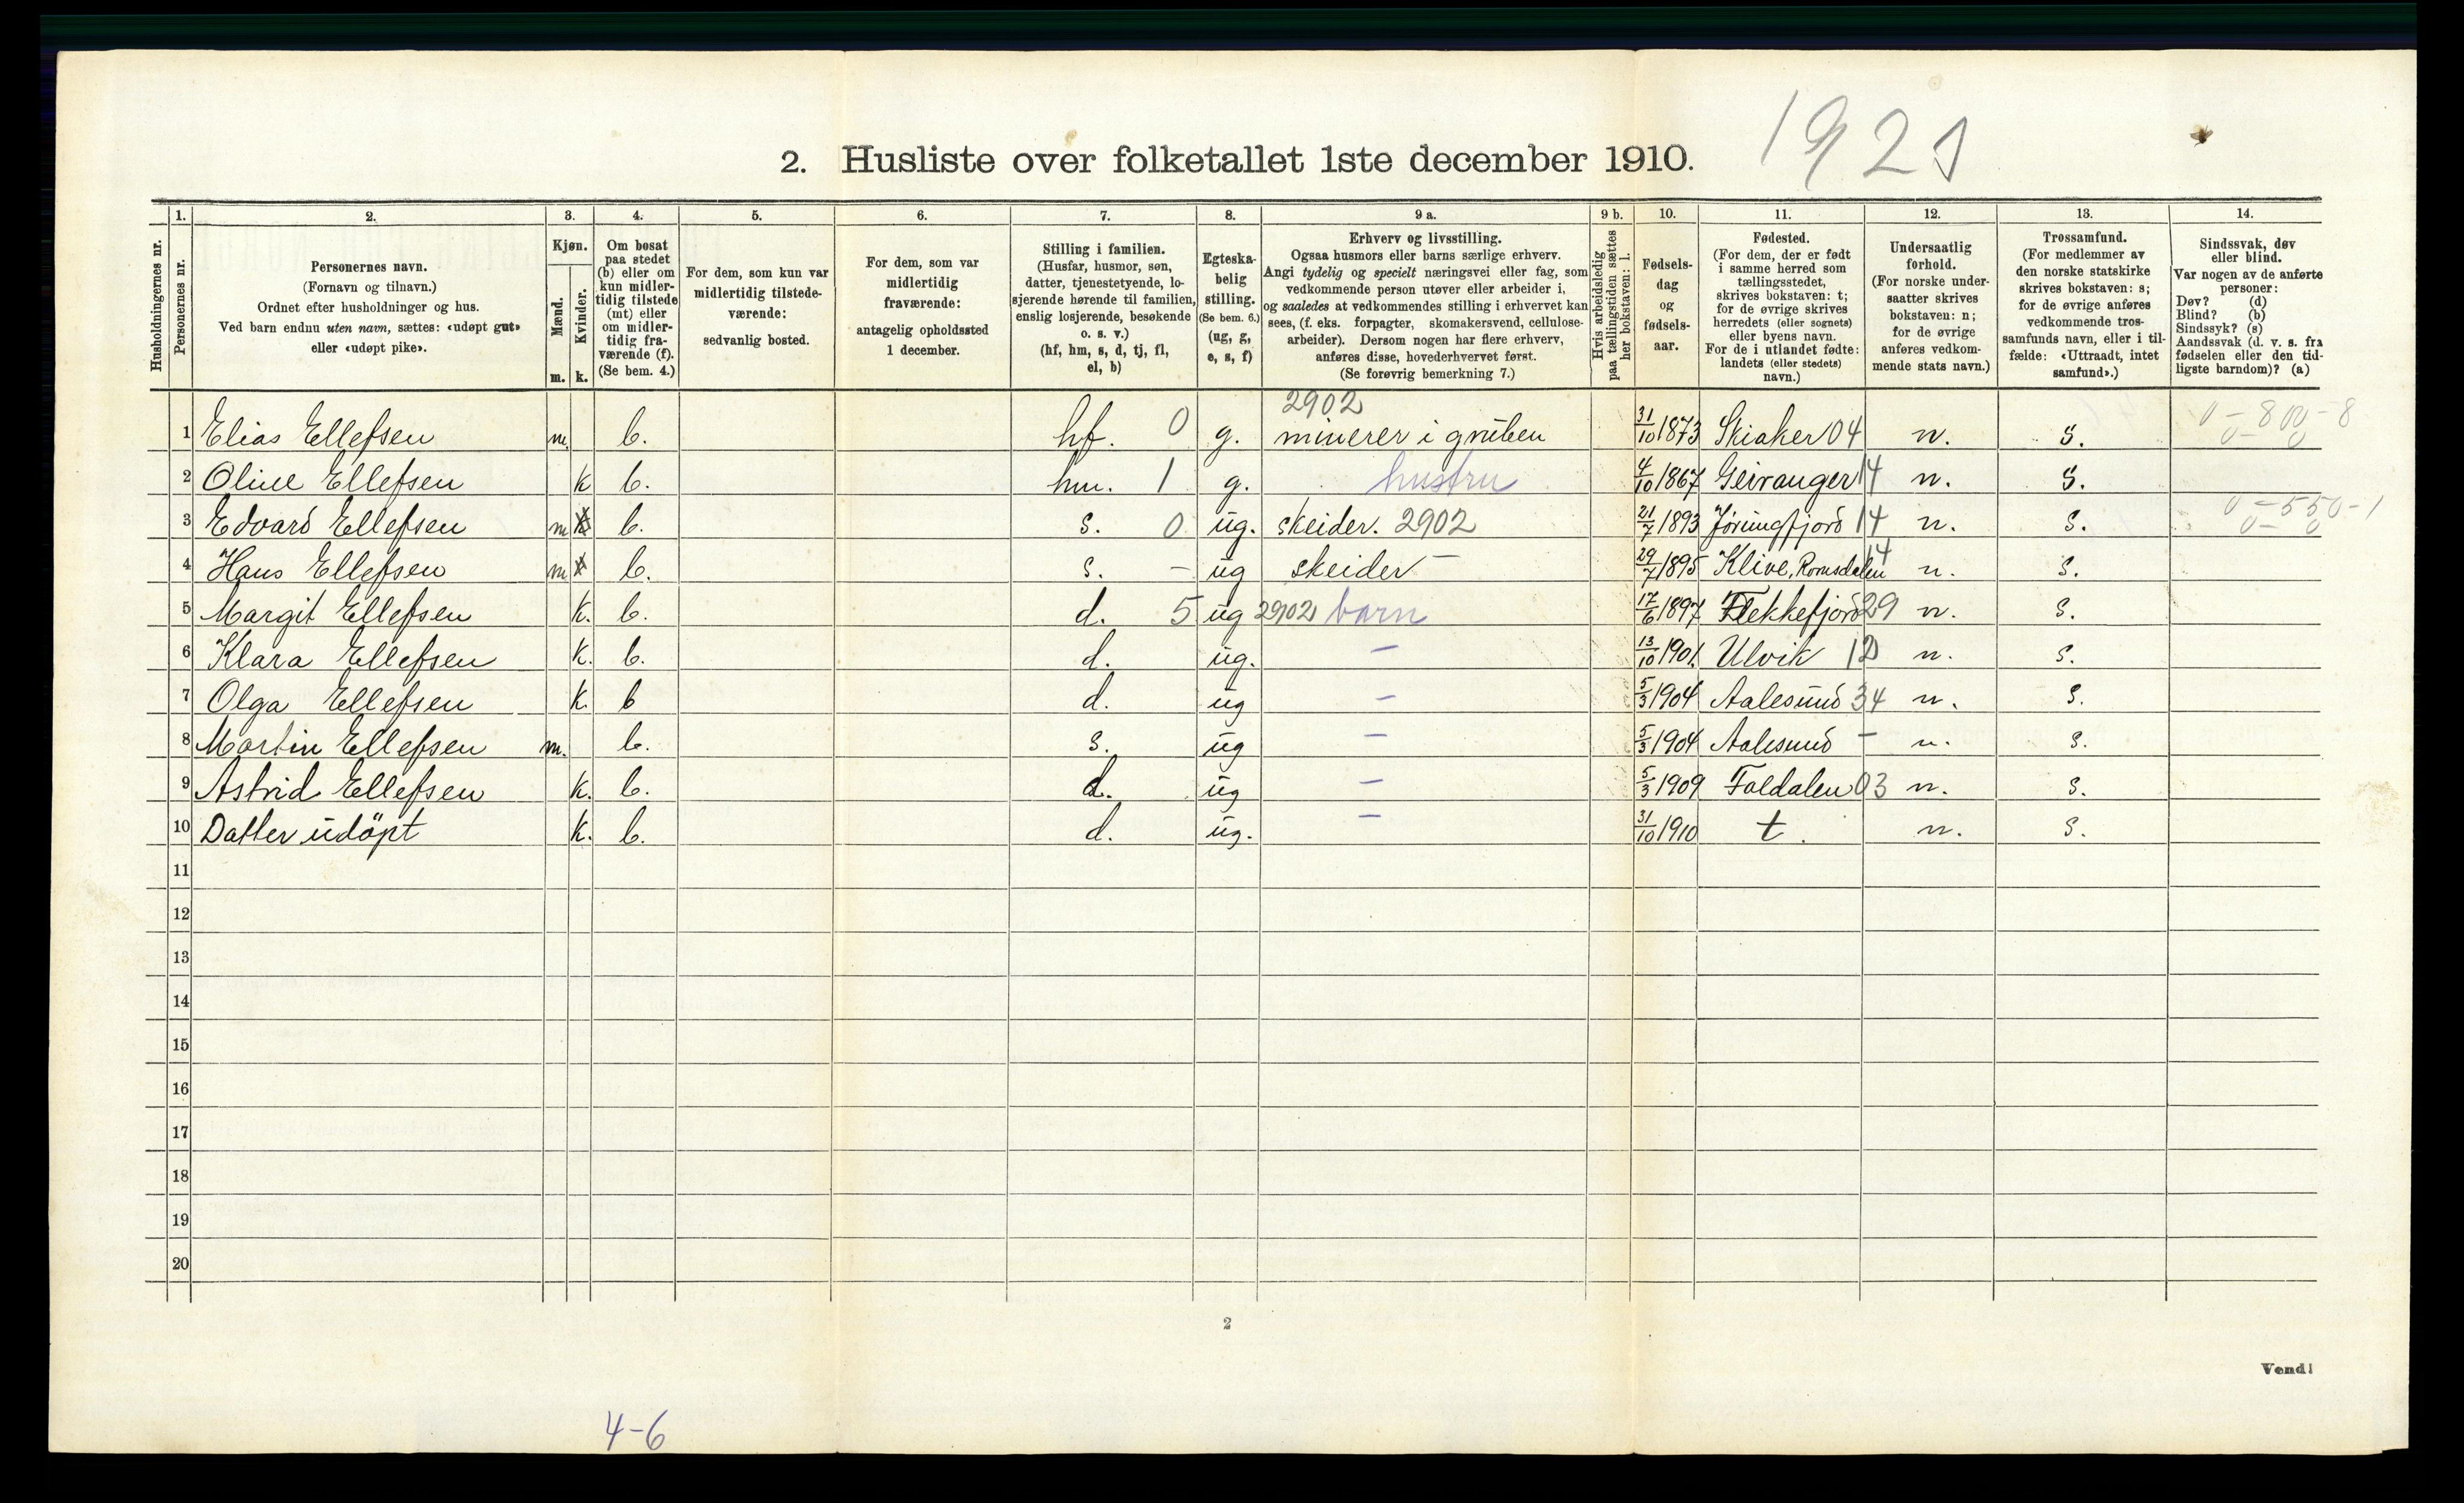 1921
2. Husliste over folketallet 1ste december 1910.
Husholdningernes nr.
1. Personernes nr.
2. Personernes navn.
(Fornavn og tilnavn.)
Ordnet efter husholdninger og hus.
Ved barn endnu uten navn, sættes: «udøpt gut»
eller «udøpt pike».
3. Kjøn.
Mænd. m.
Kvinder. k.
4. Om bosat
paa stedet
(b) eller om
kun midler-
tidig tilstede
(mt) eller
om midler-
tidig fra-
værende (f).
(Se bem. 4.)
5. For dem, som kun var
midlertidig tilstede-
værende:
sedvanlig bosted.
6. For dem, som var
midlertidig
fraværende:
antagelig opholdssted
1 december.
7. Stilling i familien.
(Husfar, husmor, søn,
datter, tjenestetyende, lo-
sjerende hørende til familien,
enslig losjerende, besøkende
o. s. v.)
(hf, hm, s, d, tj, fl,
el, b)
8. Egteska-
belig
stilling.
(Se bem. 6.)
(ug, g,
e, s, f)
9 a. Erhverv og livsstilling.
Ogsaa husmors eller barns særlige erhverv.
Angi tydelig og specielt næringsvei eller fag, som
vedkommende person utøver eller arbeider i,
og saaledes at vedkommendes stilling i erhvervet kan
sees, (f. eks. forpagter, skomakersvend, cellulose-
arbeider). Dersom nogen har flere erhverv,
anføres disse, hovederhvervet først.
(Se forøvrig bemerkning 7.)
9 b. Hvis arbeidsledig
paa tællingstiden sættes
her bokstaven: l.
10. Fødsels-
dag
og
fødsels-
aar.
11. Fødested.
(For dem, der er født
i samme herred som
tællingsstedet,
skrives bokstaven: t;
for de øvrige skrives
herredets (eller sognets)
eller byens navn.
For de i utlandet fødte:
landets (eller stedets)
navn.)
12. Undersaatlig
forhold.
(For norske under-
saatter skrives
bokstaven: n;
for de øvrige
anføres vedkom-
mende stats navn.)
13. Trossamfund.
(For medlemmer av
den norske statskirke
skrives bokstaven: s;
for de øvrige anføres
vedkommende tros-
samfunds navn, eller i til-
fælde: «Uttraadt, intet
samfund».)
14. Sindssvak, døv
eller blind.
Var nogen av de anførte
personer:
Døv? (d)
Blind? (b)
Sindssyk? (s)
Aandssvak (d. v. s. fra
fødselen eller den tid-
ligste barndom)? (a)
2902
1 Elias Ellefsen m. b. hf. 0 g. minerer i gruben 31/10 1873 Skiaker 04 n. s.
2 Oline Ellefsen k b. hm. 1 g. hustru 4/10 1867 Geiranger 14 n. s.
3 Edvard Ellefsen m b. s. 0 ug. skeider. 2902 21/7 1893 Jørungfjord 14 n. s.
4 Hans Ellefsen m b. s. – ug skeider – 29/7 1895 Klive, Romsdalen 14 n. s.
5 Margit Ellefsen k. b. d. 5 ug 2902 barn 17/6 1897 Flekkefjord 29 n. s.
6 Klara Ellefsen k. b. d. ug. – 13/10 1901. Ulvik 12 n. s.
7 Olga Ellefsen k. b d. ug – 5/3 1904 Aalesund 34 n. s.
8 Martin Ellefsen m. b. s. ug – 5/3 1904 Aalesund – n. s.
9 Astrid Ellefsen k. b. d. ug – 5/3 1909 Foldalen 03 n. s.
10 Datter udöpt k. b. d. ug. – 31/10 1910 t. n. s.
11
12
13
14
15
16
17
18
19
20
2
Vend!
4-6